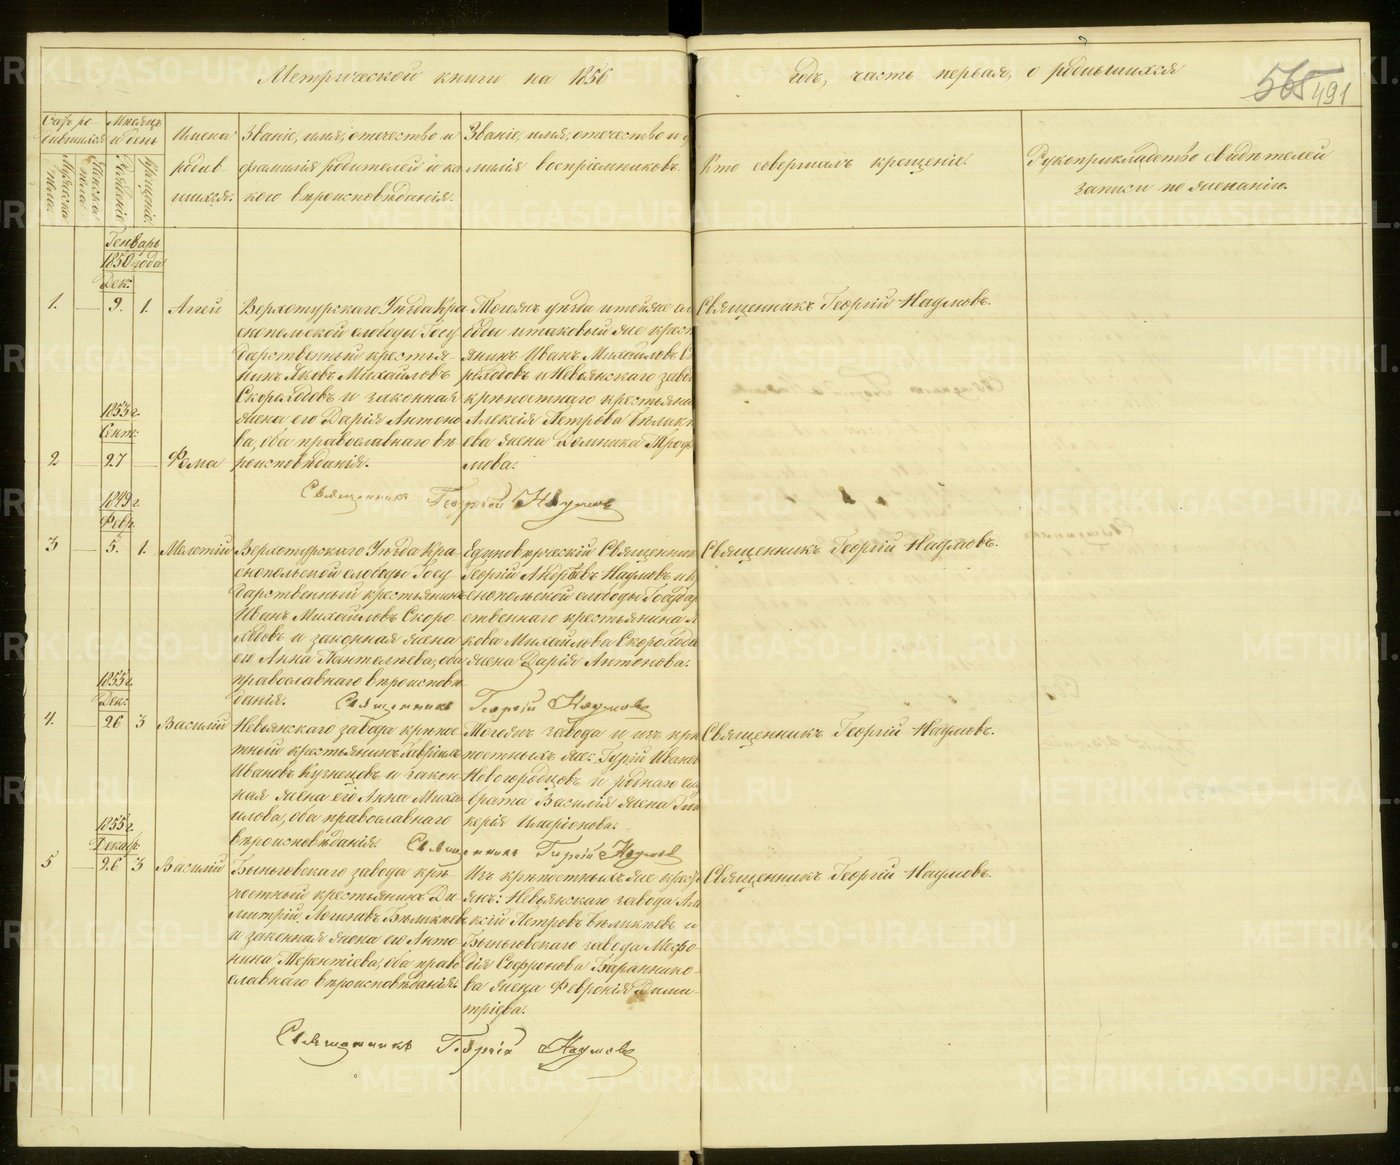 Метрической книги на 1856
годъ, часть первая, о родившихся
565
491
Счетъ ро
дившихся
Мѣсяцъ
и день
Мужеска
пола.
Женска
пола
Рожденіе
Крещеніе.
Имена
родив
шихся.
Званіе, имя, отечество и
фамилія родителей и ка
кого вѣроисповѣданія.
Званіе, имя, отечество и фа
милія воспріемниковъ.
Кто совершалъ крещеніе.
Рукоприкладство свидѣтелей
записи по желанію.
Генварь
1850 года
Дек:
1. — 9. 1. Аггей
Верхотурскаго Уѣзда Кра
снопольской слободы Госу
дарственный крестья-
нинъ Яковъ Михайловъ
Скороходовъ и законная
жена его Дарія Антоно
ва, оба православнаго вѣ
роисповѣданія.
Тогожъ уѣзда и тойже сл
ободы итаковый же крест
янинъ Иванъ Михайловъ С
роходовъ и Невьянскаго заво
крѣпостнаго крестьяни
Алексія Петрова Бѣлик
ева жена
мова.
Священникъ Георгій Наумовъ.
1853 г.
Сент:
2 — 27 — Ѳома
Священникъ Георгій Наумовъ
1849 г.
Февр.
3 — 5. 1. Мелетій
Верхотурскаго Уѣзда Кра
снопольской слободы Госу-
дарственный крестьянинъ
Иванъ Михайловъ Скоро
ходовъ и законная жена
его Анна Пантелѣева, оба
православнаго вѣроисповѣ
данія.
Единовѣрческій Священник
Георгій Андрѣевъ Наумовъ и Кр
снопольской слободы Государ
ственнаго крестьянина Я
кова Михайлова Скороходо
жена Дарія Антонова.
Священникъ Георгій Наумовъ.
Священникъ Георгій Наумовъ
1855 г.
Дек:
4. — 26 3 Василій
Невьянскаго завода крѣпо
стный крестьянинъ Гавріилъ
Ивановъ Кузнецовъ и закон
ная жена его Анна Миха
илова, оба православнаго
вѣроисповѣданія
Тогожъ завода и изъ крѣ
постныхъ же: Гурій Иванъ
Новогородцовъ и роднаго ег
брата Василія жена Гли
керія Иларіонова.
Священникъ Георгій Наумовъ.
Священникъ Георгій Наумовъ
1855 г.
Декабр:
5 — 26 3 Василій
Быньговскаго завода крѣ-
постный крестьянинъ Ди
митрій Логиновъ Бѣликѣевъ
и законная жена его Анто
нина Терентіева, оба право
славнаго вѣроисповѣданія
Изъ крѣпостныхъ же крест
янъ: Невьянскаго завода Але
ксій Петровъ Бѣликѣевъ и
Быньговскаго завода Меѳо-
дія Софронова Баранников-
ва жена Февронія Дими-
тріева.
Священникъ Георгій Наумовъ.
Священникъ Георгій Наумовъ
METRIKI.GASO-URAL.RU